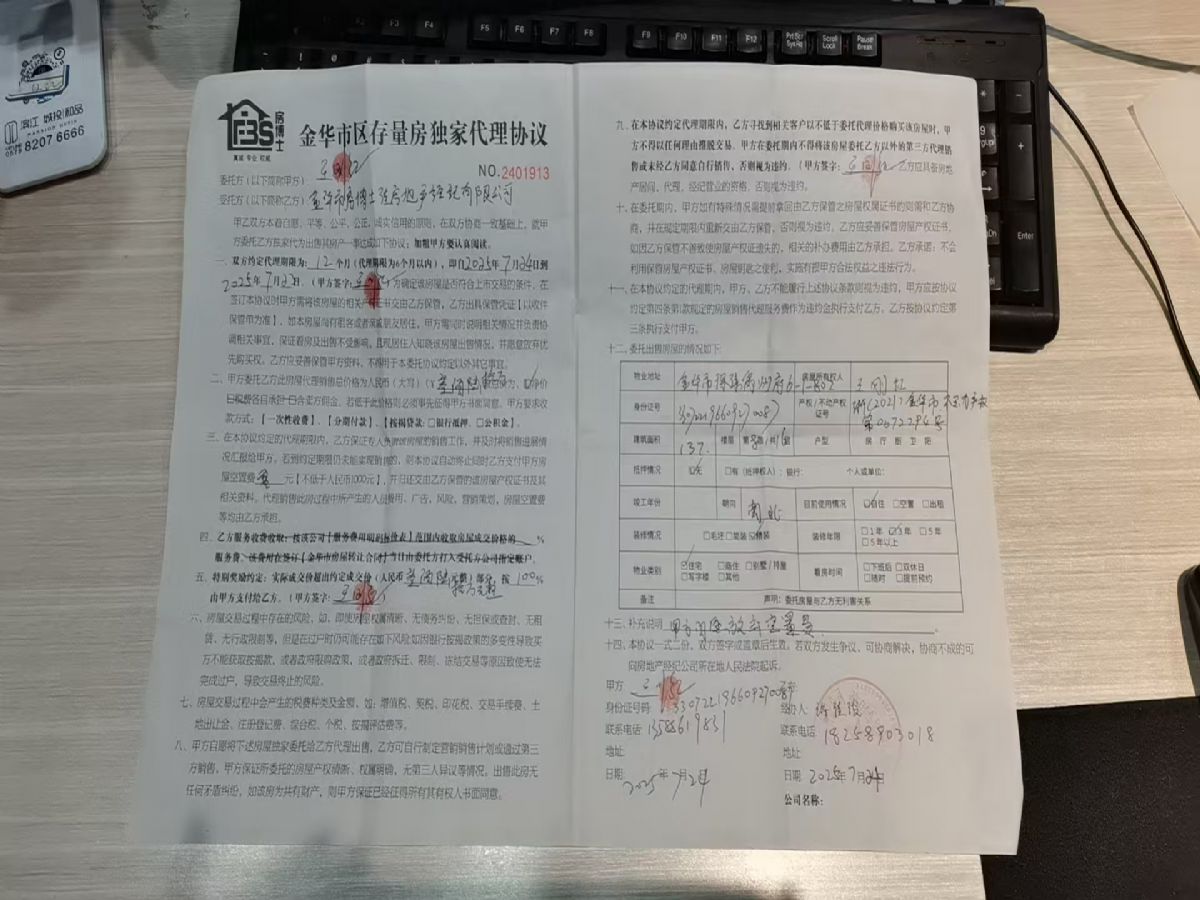 滨江 城投和品
0579 8207 6666
F3
F4
F5
F6
F7
F8
F9
F10
F11
F12
PrtScr
SysRq
Scroll
Lock
Pause
Break
Enter
FBS 房博士
真诚 专业 权威
金华市区存量房独家代理协议
NO.2401913
委托方(以下简称甲方)
受托方(以下简称乙方)金华市房博士住房地产经纪有限公司
甲乙双方本着自愿、平等、公平、公正、诚实信用的原则,在双方协商一致基础上,就甲
方委托乙方独家代为出售其房产一事达成如下协议:加粗甲方要认真阅读。
一、双方约定代理期限为:12个月(代理期限为6个月以内),即自2025年7月24日到
2025年7月23日。(甲方签字: 为确定该房屋是否符合上市交易的条件,在
签订本协议时甲方需将该房屋的相关产权证书交由乙方保管,乙方出具保管凭证【以收件
保管单为准】。如本房屋尚有租客或者亲戚朋友居住,甲方需同时说明相关情况并负责协
调相关事宜,保证看房及出售不受影响,且现居住人知晓该房屋出售情况,并愿意放弃优
先购买权。乙方应妥善保管甲方资料,不得用于本委托协议约定以外其它事宜。
二、甲方委托乙方此房屋代理销售总价格为人民币(大写)(¥
日税费各自承担 口含卖方佣金,若低于此价格则必须事先征得甲方书面同意。甲方要求收
款方式:【一次性收费】、【分期付款】、【按揭贷款:□银行抵押、□公积金】。
三、在本协议约定的代理期限内,乙方保证专人负责该房屋的销售工作,并及时将销售进展情
况汇报给甲方。若到约定期限仍未能实现销售的,则本协议自动终止同时乙方支付甲方房
屋空置费 元【不低于人民币1000元】,并归还交由乙方保管的该房屋产权证书及其
相关资料。代理销售此房过程中所产生的人员费用、广告、风险、营销策划,房屋空置费
等均由乙方承担。
四、乙方服务收费收取:按该公司【服务费用明码标价表】范围内收取房屋成交价格的 %
服务费。该费用在签订【金华市房屋转让合同】当日由委托方打入受托方公司指定账户。
五、特别奖励约定:实际成交价超出约定成交价(人民币 )部分,按100%
由甲方支付给乙方。(甲方签字:
六、房屋交易过程中存在的风险,如,即使房屋权属清晰、无债务纠纷、无担保或查封、无租
赁、无行政裁前等,但是在过户时仍可能存在如下风险如因银行按揭政策的多变性导致买
方不能获取按揭款,或者政府限购政策,或者政府拆迁、限制、冻结交易等原因致使无法
完成过户,导致交易终止的风险。
七、房屋交易过程中会产生的税费种类及金额,如:增值税、契税、印花税、交易手续费、土
地出让金、注册登记费、综合税、个税、按揭评估费等。
八、甲方自愿将下述房屋独家委托给乙方代理出售,乙方可自行制定营销销售计划或通过第三
方销售,甲方保证所委托的房屋产权清晰、权属明确、无第三人异议等情况。出售此房无
任何矛盾纠纷,如该房为共有财产,则甲方保证已经征得所有其有权人书面同意。
九、在本协议约定代理期限内,乙方寻找到相关客户以不低于委托代理价格购买该房屋时,甲
方不得以任何理由推脱交易。甲方在委托期内不得将该房屋委托乙方以外的第三方代理销
售或未经乙方同意自行销售,否则视为违约。(甲方签字: 乙方应具备房地
产居间、代理、经纪营业的资格,否则视为违约。
十、在委托期内,甲方如有特殊情况需提前拿回由乙方保管之房屋权属证书的则需和乙方协
商,并在规定期限内重新交由乙方保管,否则视为违约。乙方应妥善保管房屋产权证书,
如因乙方保管不善致使房屋产权证遗失的,相关的补办费用由乙方承担。乙方承诺:不会
利用保管房屋产权证书、房屋钥匙之便利,实施有损甲方合法权益之违法行为。
十一、在本协议约定的代理期内,甲方、乙方不能履行上述协议条款则视为违约,甲方应按协议
约定第四条第1款规定的房屋销售代理服务费作为违约金执行支付乙方。乙方按协议约定第
三条执行支付甲方。
十二、委托出售房屋的情况如下:
物业地址 金华市 6-1-802 房屋所有权人 王刚红
身份证号 330722196609270087 产权/不动产权证号 浙(2021)金华市不动产权第0072294号
建筑面积 137. 楼层 户型 房 厅 厨 卫 阳
抵押情况 ☑无 □有(抵押权人):银行: 个人或单位:
竣工年份 朝向 南北 目前使用情况 ☑自住 □空置 □出租
装修情况 □毛坯 □简装 ☑精装 装修年限 □1年 ☑3年 □5年 □5年以上
物业类别 ☑住宅 □商住 □别墅/排屋 □写字楼 □其他 看房时间 □下班后 □双休日 □随时 □提前预约
备注 声明:委托房屋与乙方无利害关系
十三、补充说明 甲方自愿放弃空置费.
十四、本协议一式二份,双方签字或盖章后生效,若双方发生争议、可协商解决,协商不成的可
向房地产经纪公司所在地人民法院起诉。
甲方:
身份证号码:330722196609270087
联系电话:13586619831
地址:
日期:2025年7月24
乙方:
经办人:
联系电话:18258903018
地址:
日期:2025年7月24
公司名称: